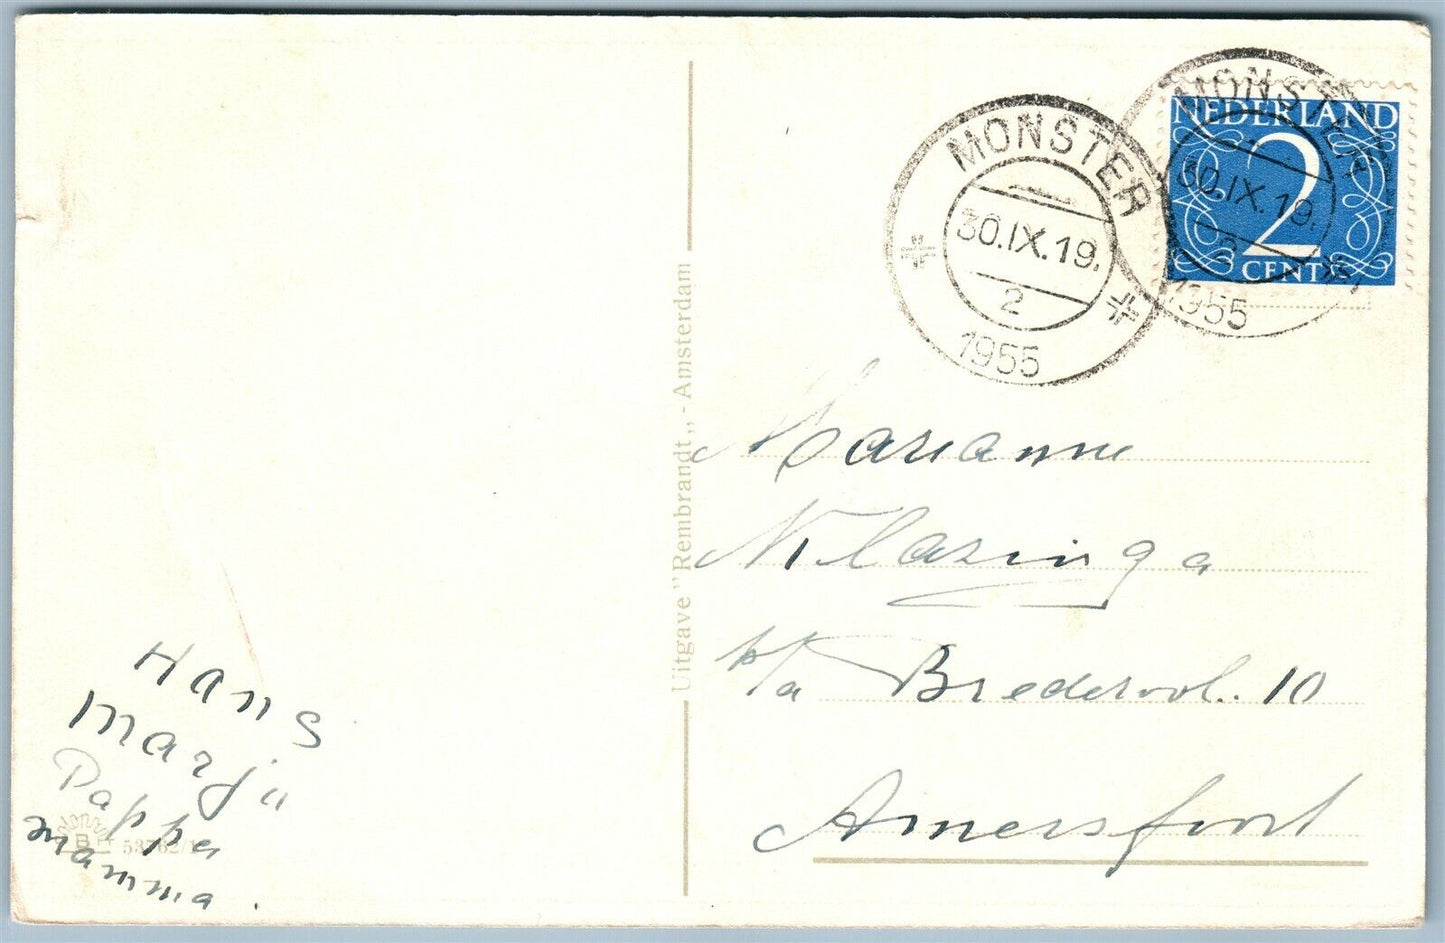 MONSTER
30.IX.19.
2
1955
MONSTER
30.IX.19.
2
1955
NEDERLAND
2
CENT
Uitgave "Rembrandt„ - Amsterdam
Marianne
Klazinga
p/a Brederol. 10
Amersfoort
Hans
Marja
Pappa
mamma.
B 53762/1